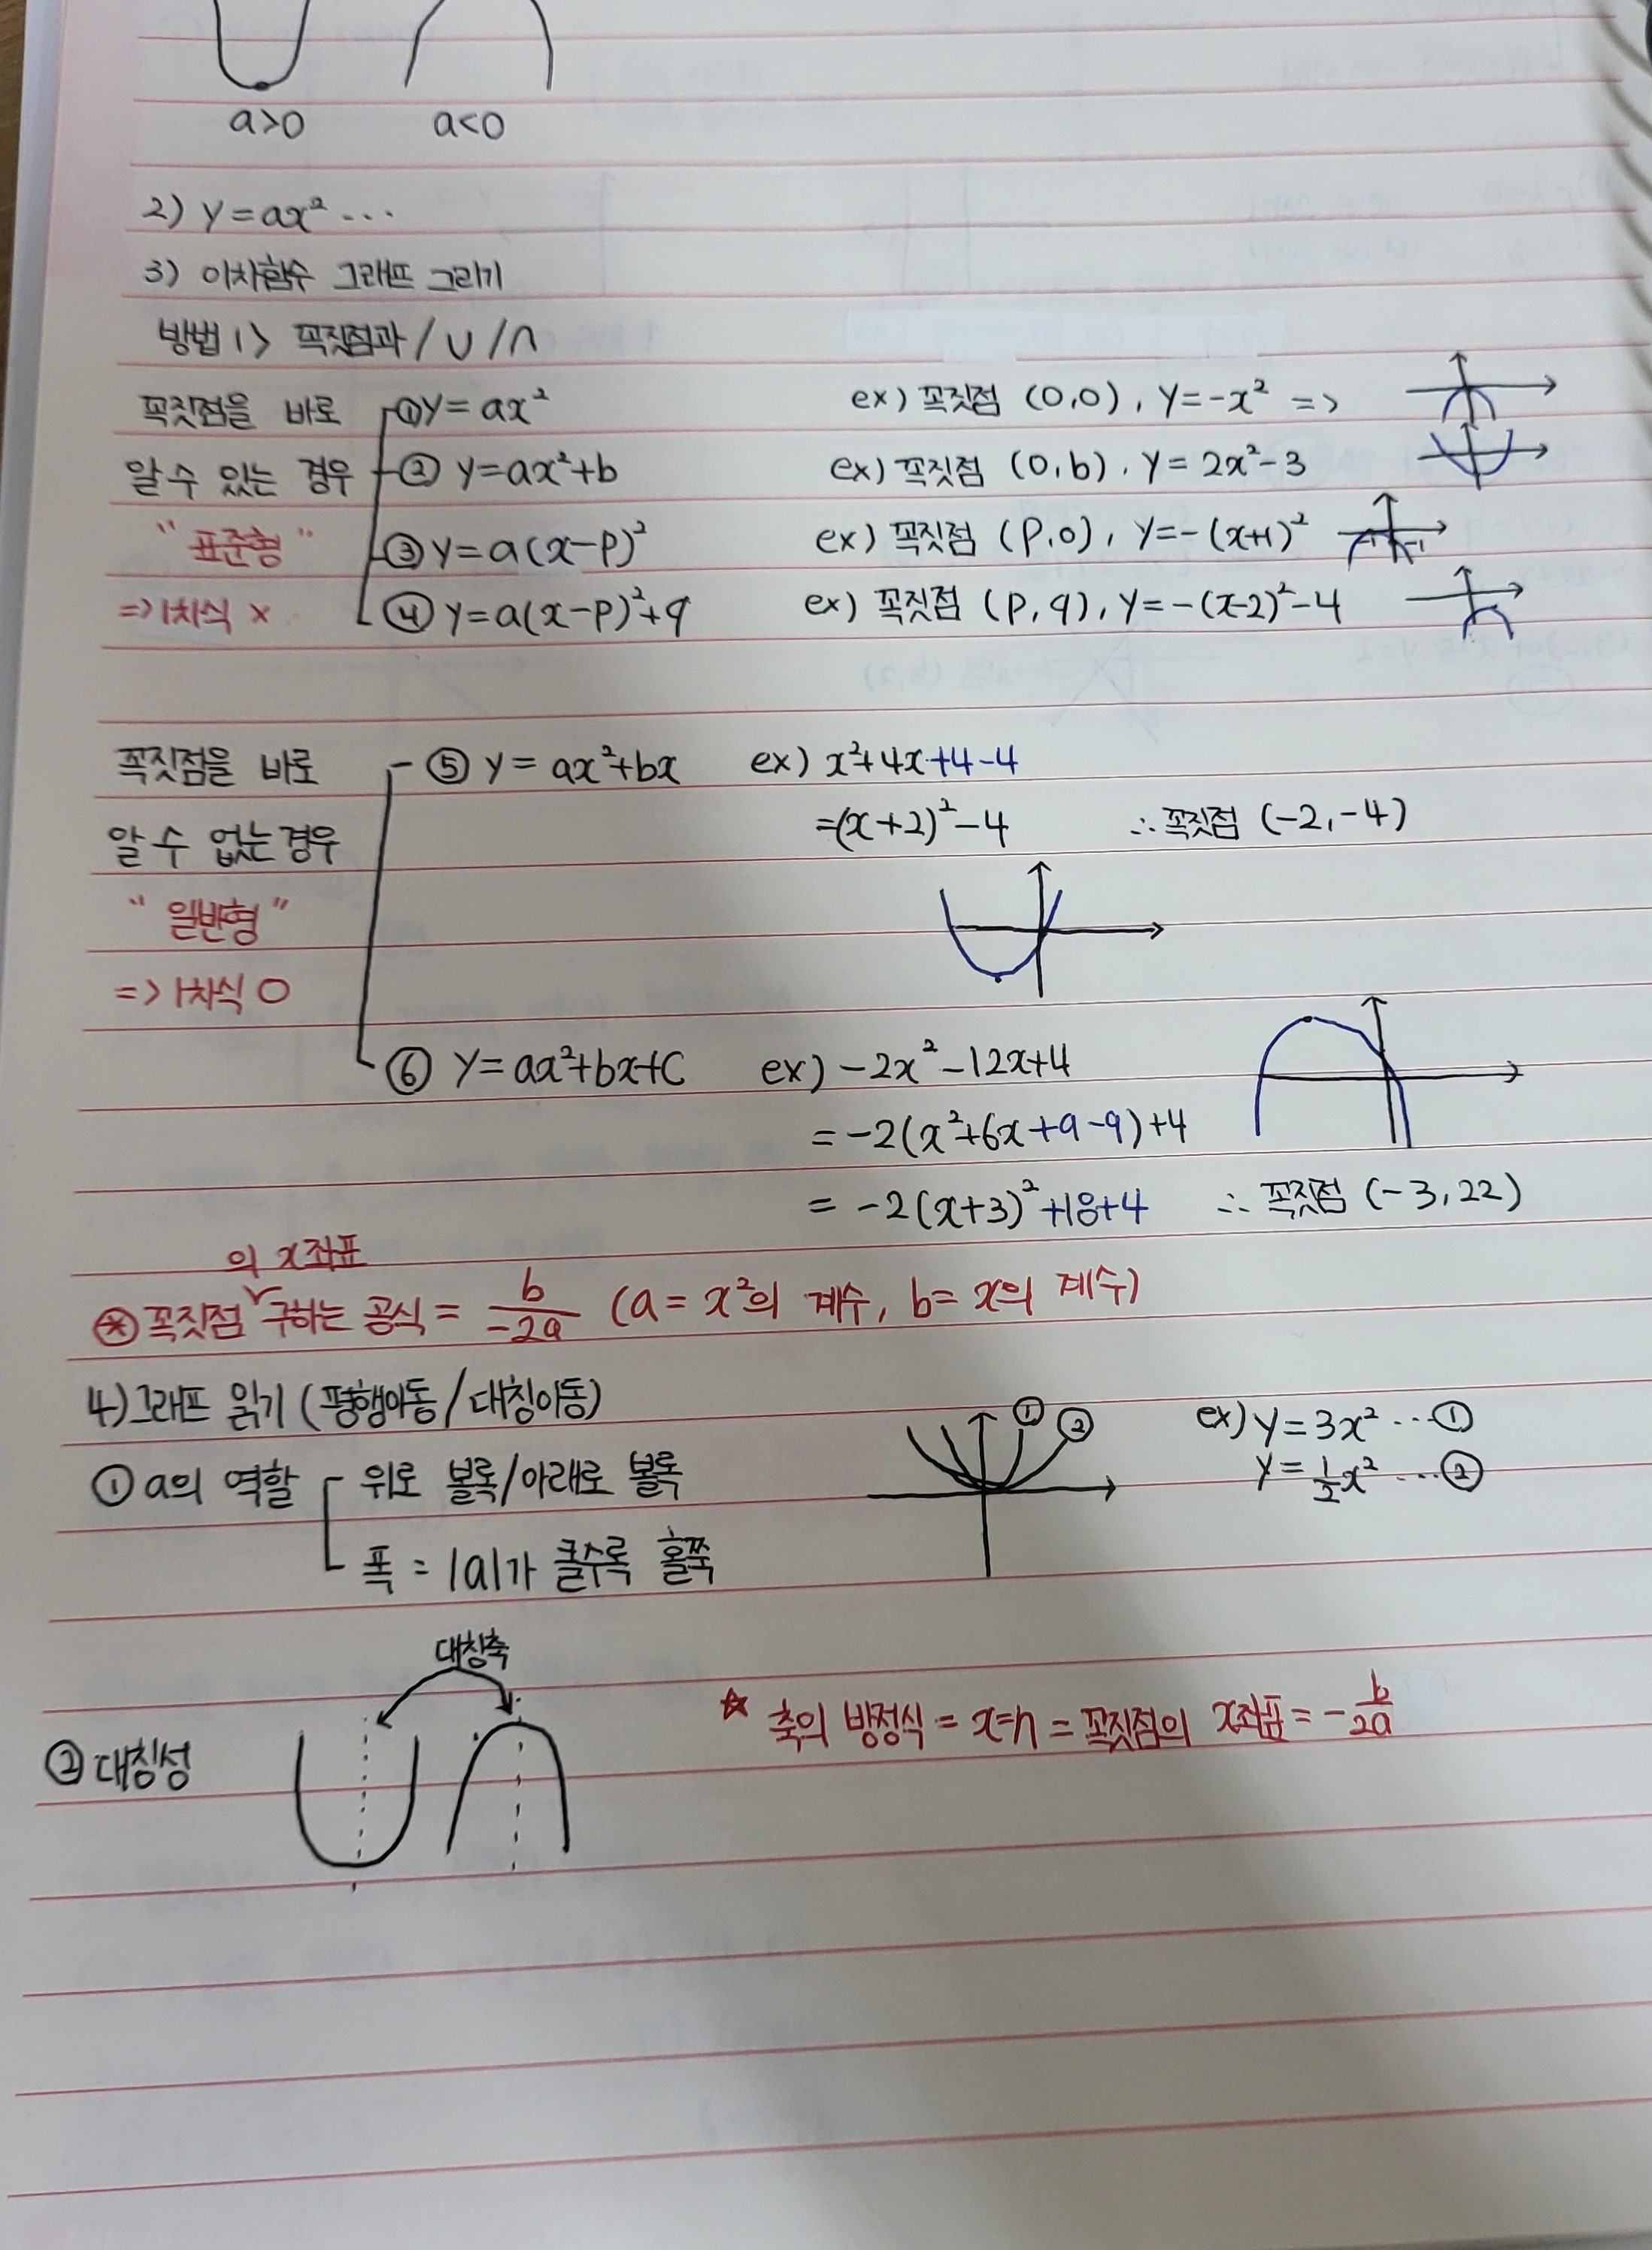 a>0 a<0
2) y=ax² ...
3) 이차함수 그래프 그리기
방법 1> 꼭짓점과 / ∪ / ∩
꼭짓점을 바로 ① y=ax² ex) 꼭짓점 (0,0), y=-x² =>
알 수 있는 경우 ② y=ax²+b ex) 꼭짓점 (0,b), y=2x²-3
"표준형" ③ y=a(x-p)² ex) 꼭짓점 (p,0), y=-(x+1)² -1 -1
=> 1차식 × ④ y=a(x-p)²+q ex) 꼭짓점 (p,q), y=-(x-2)²-4
꼭짓점을 바로 ⑤ y=ax²+bx ex) x²+4x+4-4
알 수 없는 경우 =(x+2)²-4 ∴ 꼭짓점 (-2,-4)
"일반형"
=> 1차식 O
⑥ y=ax²+bx+c ex) -2x²-12x+4
= -2(x²+6x+9-9)+4
= -2(x+3)²+18+4 ∴ 꼭짓점 (-3,22)
의 x좌표
⊛ 꼭짓점 ∨ 구하는 공식 = b/-2a (a=x²의 계수, b=x의 계수)
4) 그래프 읽기 (평행이동/대칭이동) ① ② ex) y=3x² ...①
① a의 역할 위로 볼록/아래로 볼록 y=1/2x² ...②
폭 = |a|가 클수록 홀쭉
대칭축
☆ 축의 방정식 = x=n = 꼭짓점의 x좌표 = -b/2a
② 대칭성